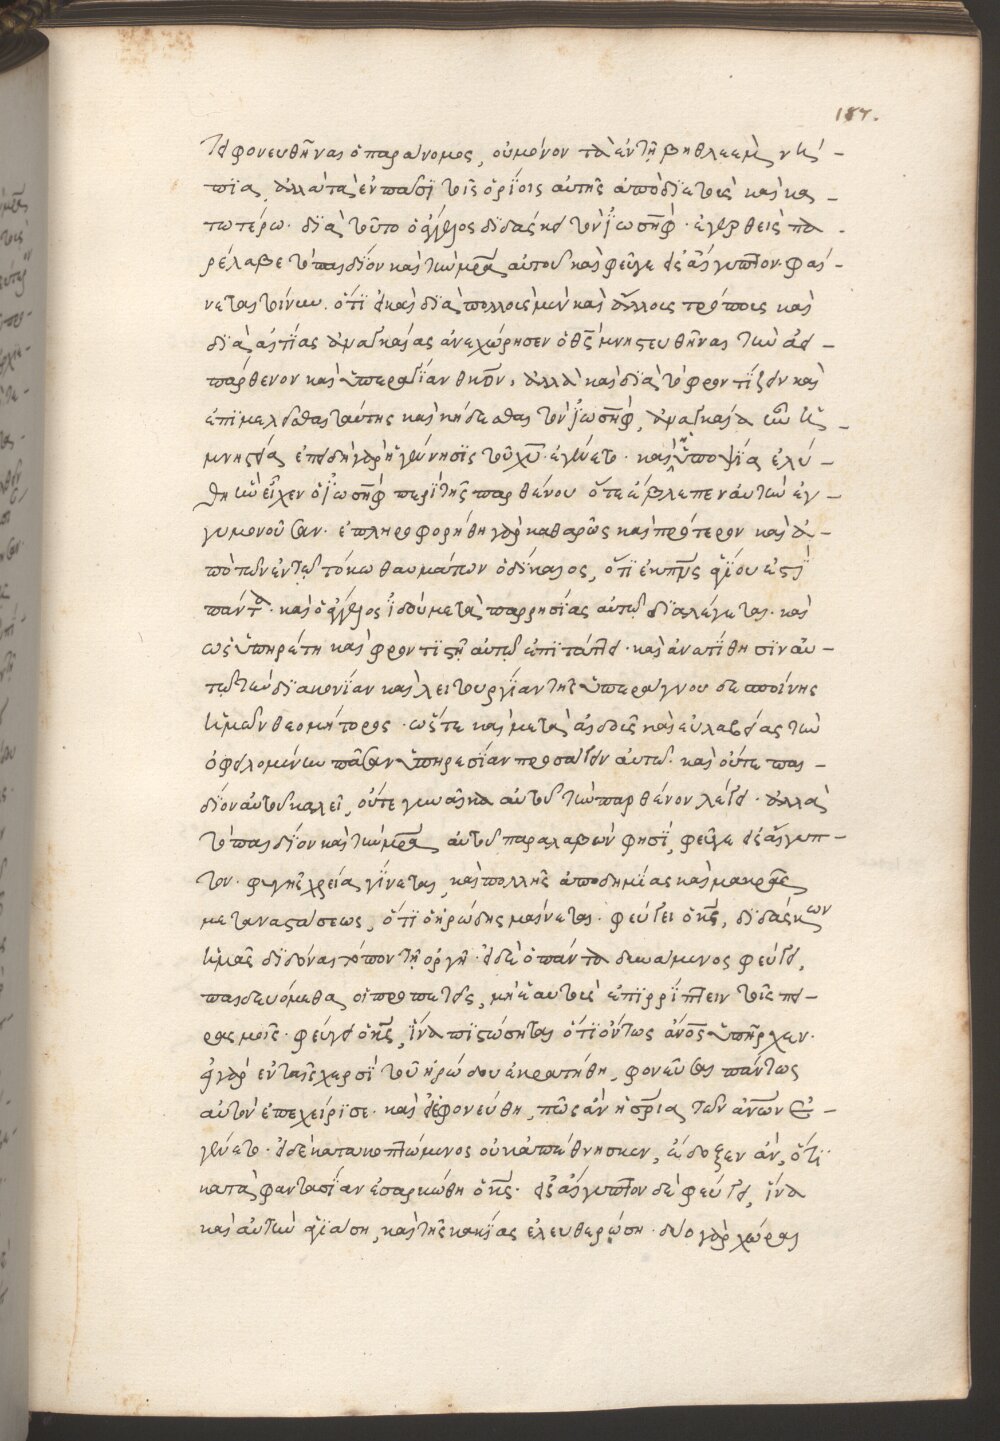 187.
γε φονευθῆναι ὁ παράνομος, οὐ μόνον τὰ ἐν τῇ βηθλεὲμ νή-
πϊα, ἀλλὰ τὰ ἐν πᾶσϊ τοῖς ὁρΐοις αὐτῆς ἀπὸ δϊετοῦς καὶ κα-
τωτέρω. δϊὰ τοῦτο ὁ ἄγγελος δϊδάσκει τὸν ἰωσὴφ. ἐγερθεὶς πα-
ρέλαβε τὸ παιδΐον καὶ τὴν μρ̅α αὐτοῦ καὶ φεῦγε εἰς αἴγυπτον. φαί-
νεται τοίνυν. ὅτϊ εἰ καὶ δϊὰ πολλοῖς μὲν καὶ ἄλλοις τρόποις καὶ
δϊὰ αἰτΐας ἀναγκαίας ἀνεχώρησεν ὁ θς̅ μνηστευθῆναι τὴν ἀεὶ-
πάρθενον καὶ ὑπεραγΐαν θκο̅ν, ἀλλὰ καὶ δϊὰ τὸ φροντΐζειν καὶ
ἐπϊμελεῖσθαι ταύτης καὶ κήδεσθαι τὸν ἰωσὴφ, ἀναγκαία οὖν ἡ
μνηστεία, ἐπειδὴ γὰρ ἡ γέννησϊς τοῦ χυ̅ ἐγένετο. καὶ ἡ ὑποψΐα ἐλύ-
θη ἣν εἶχεν ὁ ἰωσὴφ περὶ τῆς παρθένου ὅτε ἔβλεπεν αὐτὴν ἐγ-
κυμονοῦσαν. ἐπληροφορήθη γὰρ καθαρῶς καὶ πρότερον καὶ ἀ-
πὸ τῶν ἐν τῷ τόκω θαυμάτων ὁ δΐκαιος, ὅτϊ ἐκ πνς̅ ἁγΐου ἐστὶ
πάντα. καὶ ὁ ἄγγελος ἰδοὺ μετὰ παρρησΐας αὐτῷ δϊαλέγεται. καὶ
ὡς ὑπηρέτη καὶ φροντϊστῇ αὐτῷ ἐπϊτάττει. καὶ ἀνατΐθησϊν αὐ-
τῷ τὴν δϊακονΐαν καὶ λειτουργΐαν τῆς ὑπεράγνου δεσποίνης
ἡμῶν θεομήτορος. ὥστε καὶ μετὰ αἰδοῦς καὶ εὐλαβείας τὴν
ὀφειλομένην πᾶσαν ὑπηρεσΐαν προσάγειν αὐτῷ. καὶ οὔτε παι-
δΐον αὐτοῦ καλεῖ, οὔτε γυναῖκα αὐτοῦ τὴν παρθένον λέγει. ἀλλὰ
τὸ παιδΐον καὶ τὴν μρ̅α αὐτοῦ παραλαβὼν φησὶ, φεῦγε εἰς αἴγυπ-
τον. φυγῆς χρεία γΐνεται, καὶ πολλῆς ἀποδημΐας καὶ μακρᾶς
μεταναστάσεως, ὅτϊ ὁ ἡρώδης μαίνεται. φεύγει ὁ κς̅, δϊδάσκων
ἡμᾶς δϊδόναι τόπον τῇ ὀργῇ. εἰ δὲ ὁ πάντα δυνάμενος φεύγει,
παιδευόμεθα οἱ προπετεῖς, μὴ ἑαυτοὺς ἐπϊρρΐπτειν τοῖς πει-
ρασμοῖς. φεύγει ὁ κς̅, ἵνα πϊστώσηται ὅτϊ ὄντως ἄνο̅ς ὑπῆρχεν.
εἰ γὰρ ἐν ταῖς χερσὶ τοῦ ἡρώδου ἐκρατήθη, φονεῦσαι πάντως
αὐτὸν ἐπεχείρϊσε. καὶ εἰ ἐφονεύθη, πῶς ἂν ἡ σρ̅ια τῶν ἀνω̅ν ἐ-
γένετο. εἰ δὲ κατακοπτώμενος οὐκ ἀπέθνησκεν, ἔδοξεν ἂν, ὅτϊ
κατὰ φαντασΐαν ἐσαρκώθη ὁ κς̅. εἰς αἴγυπτον δὲ φεύγει, ἵνα
καὶ αὐτὴν ἁγϊάση, καὶ τῆς κακΐας ἐλευθερώση. δύο γὰρ χώραι